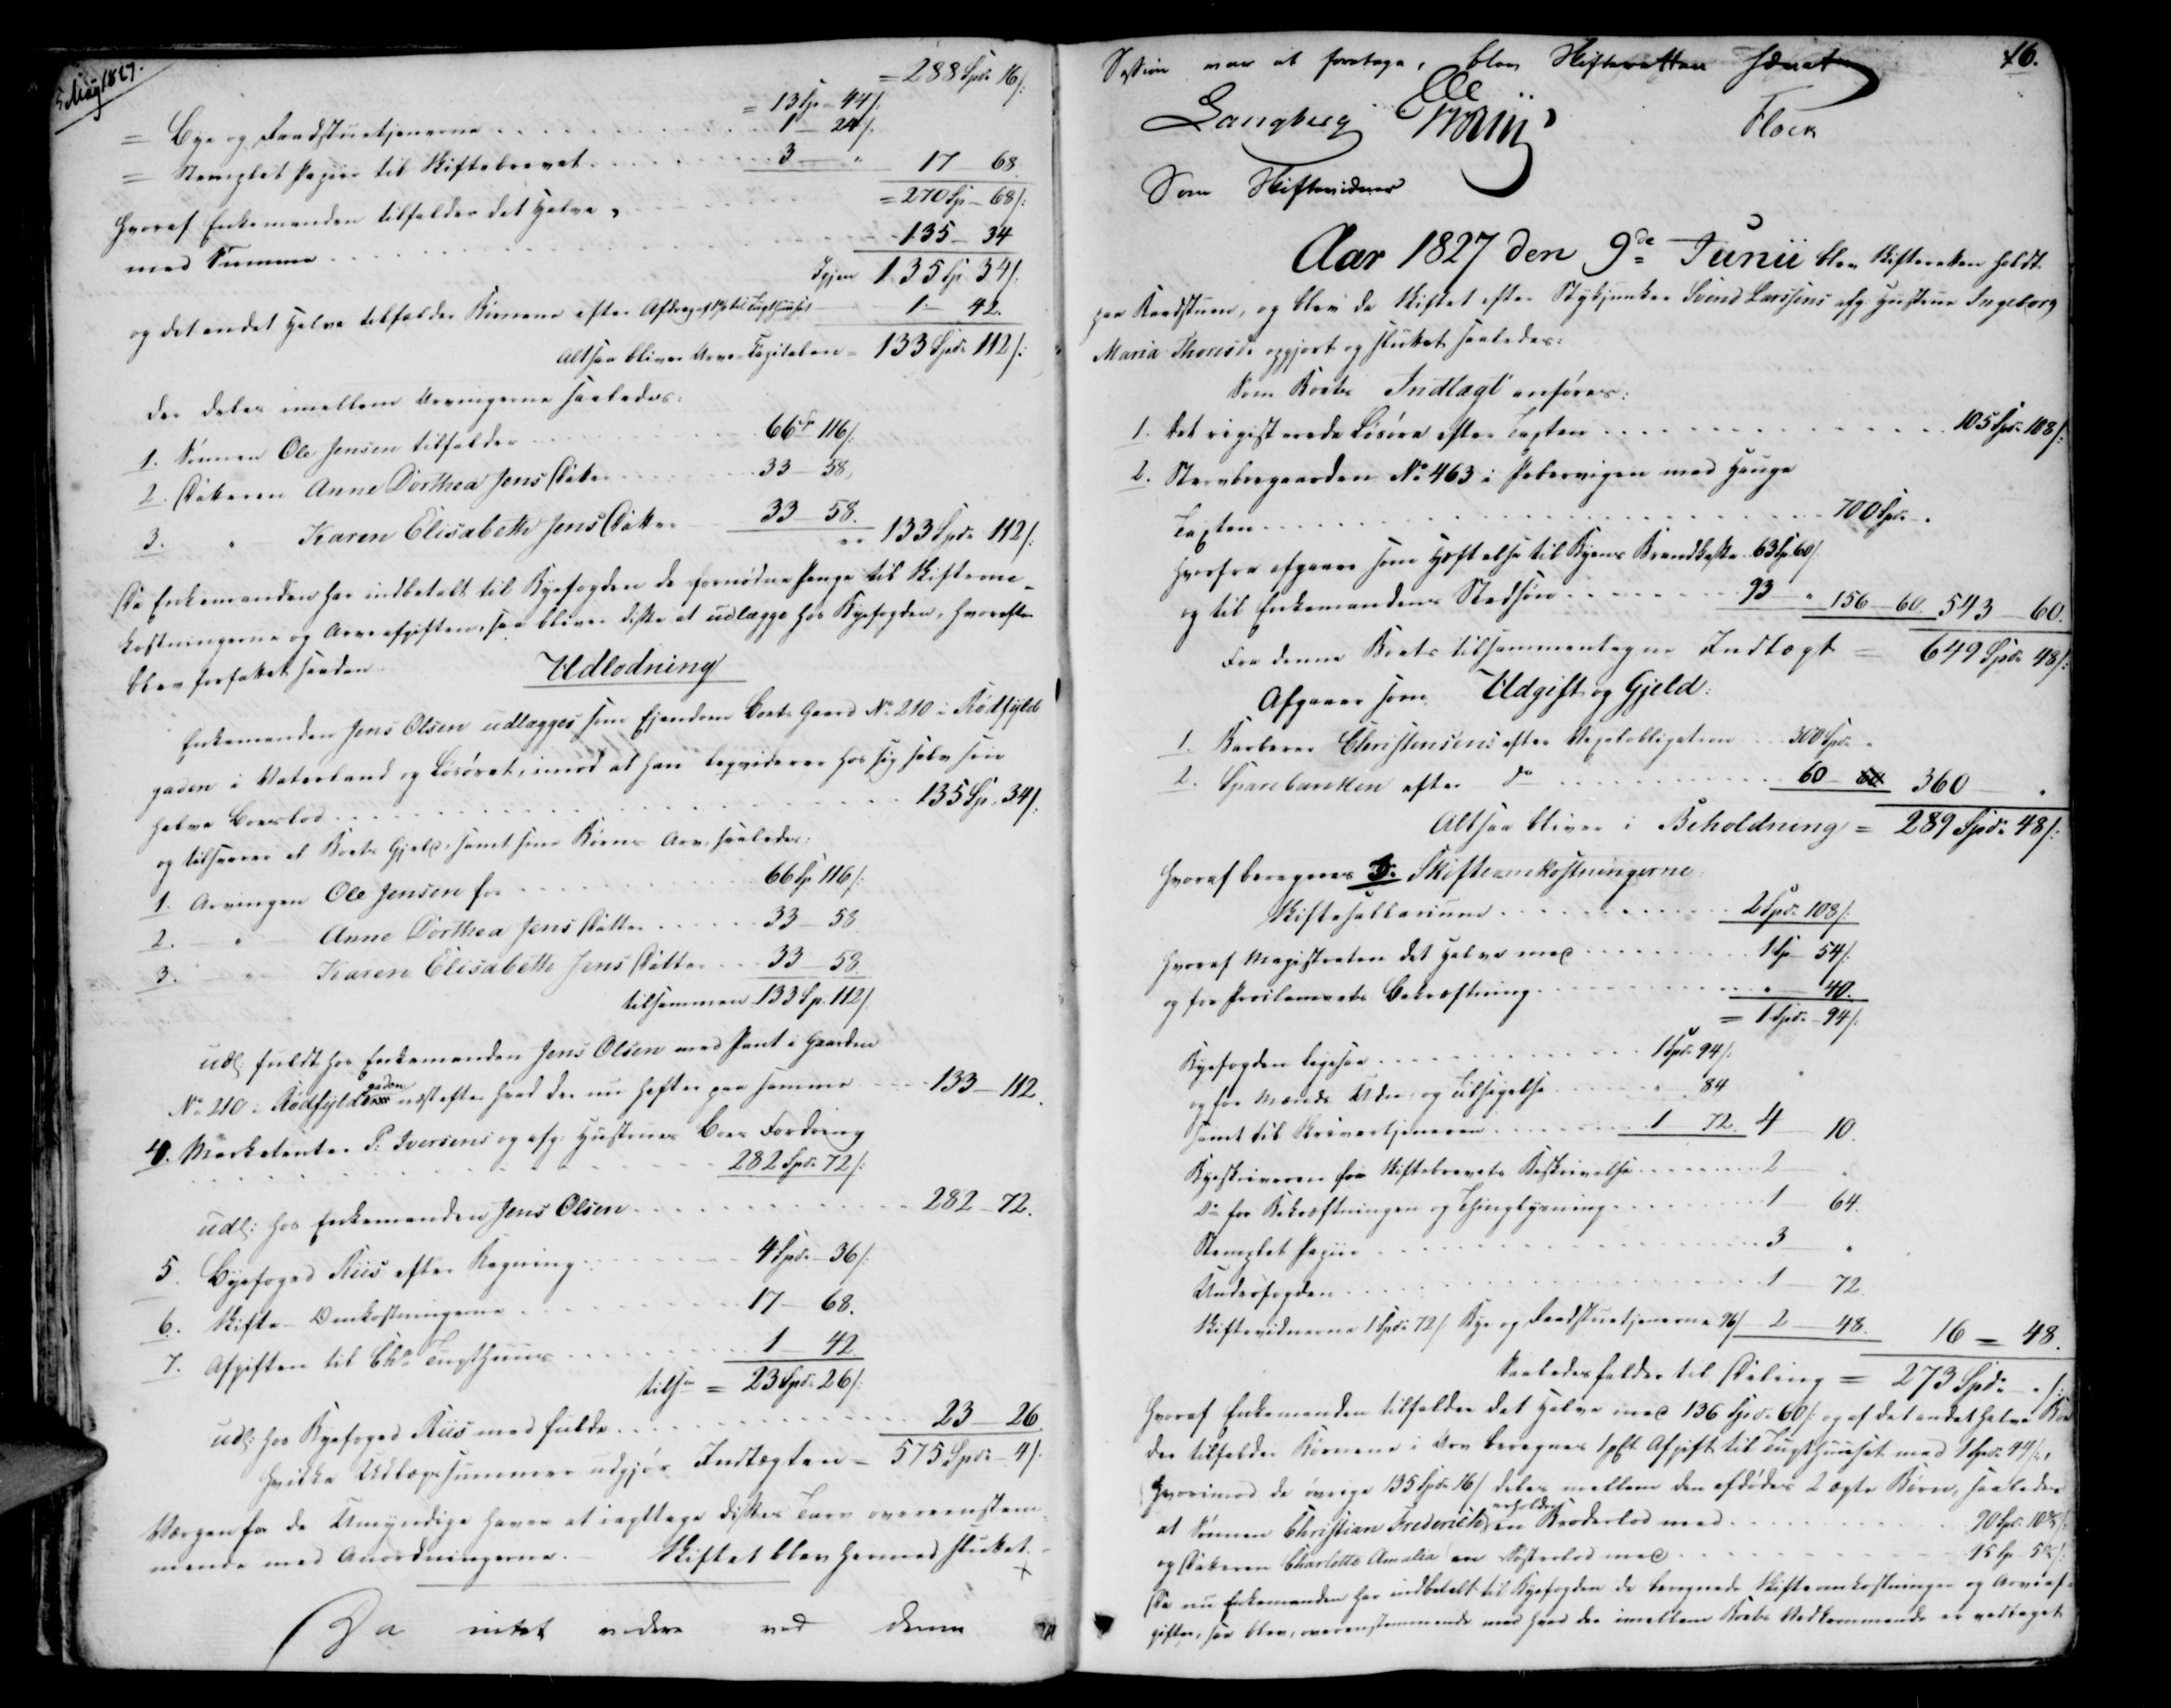 5 Maÿ 1827.
= 288 Spd: 16/:
= 13 Sp - 44/:
= Bye og Raadstuetjenerne . . . 1 - 24/:
= Stemplet Papiir til Skiftebrevet . . . 3 - " 17 - 68.
= 270 Sp - 68/:
Hvoraf Enkemanden tilfalder det halve,
med Summa . . . 135 - 34
Igjen 135 Sp 34/:
og det andet halve tilfalder Börnene efter Afdrag af til Tugthuuset 1 - 42.
Altsaa bliver Arve-Capitalen = 133 Spd: 112/:
der deles imellem Arvingerne saaledes:
1. Sönnen Ole Jensen tilfalder . . . 66 Sp 116/:
2. Datteren Anne Dorthea Jens Datter . . . 33 - 58,
3. " Karen Elisabeth Jens Datter - 33 - 58.
er 133 Spd: 112/:
Da Enkemanden har indbetalt til Byefogden de fornödne Penge til Skifteom-
kostningerne og Arveafgiften, saa bliver disse at udlægge hos Byefogden, hvorefter
blev forfattet saadan
Udlodning
Enkemanden Jens Olsen udlægges som Ejendom Boets Gaard No 210 i Rödfyld
gaden i Vaterland og Lösöret, imod at han liqviderer hos sig selv sin
halve Boeslod . . . 135 Sp. 34/:
og tilsvarer al Boets Gjeld, samt sine Börns Arv, saaledes:
1. Arvingen Ole Jensen for . . . 66 Sp 116/:
2. " Anne Dorthea Jens Datter . . . 33 - 58
3. " Karen Elisabeth Jens Datter . . . 33 - 58.
tilsammen 133 Sp. 112/
udl: fuldt hos Enkemanden Jens Olsen med Pant i Gaarden
No 210 i Rödfyldgaden næst efter hvad der nu hefter paa samme . . . 133 - 112.
4. Marketenter P: Iversens og afg: Hustrues Boes Fordring
. . . 282 Spd: 72/:
udl: hos Enkemanden Jens Olsen . . . 282 - 72.
5. Byefoged Riis efter Regning . . . 4 Spd: - 36/:
6. Skifte-Omkostningerne . . . 17 - 68.
7. Afgiften til Chra Tugthuus . . . 1 - 42
tilsn = 23 Spd: 26/:
udl: hos Byefoged Riis med fulde . . . 23 - 26
Hvilke Udlægssummer udgjör Indtægten = 575 Spd: - 4/:
Værgen for de Umyndige haver at iagttage disses Tarv overeenstem-
mende med Anordningerne. - Skiftet blev hermed sluttet. -
Da intet videre ved denne
16.
Session var at foretage, blev Skifteretten hævet
Langberg Riis Flock
Som Skiftevidner
Aar 1827 den 9de Junii blev Skifteretten holdt
paa Raadstuen, og blev da Skiftet efter Svend Larssens afg. Hustrue Ingeborg
Maria Thoresd: opgjort og sluttet saaledes:
Som Boets Indtægt anföres:
1. Det registrerede Lösöre efter Taxten . . . 105 Spd: 108/:
2. Stervboegaarden No 463 i Pebervigen med Hauge
Taxten . . . 700 Spd: - "
Hvorfra afgaaer som Heftelse til Byens Brandkasse 63 Sp 60/
og til Enkemandens Stedsön . . . 93 - " 156 - 60. 543 - 60.
Fra denne Boets tilsammentagne Indtægt = 649 Spd: 48/:
Afgaaer som Udgift og Gjeld:
1. Barberer Christensens efter Vexelobligation . . 300 Spd: "
2. Sparebanken efter do . . . 60 - 360 - "
Altsaa bliver i Beholdning = 289 Spd: 48/:
Hvoraf beregnes 3: Skifteomkostningerne:
Skiftesallarium . . . 2 Spd: 108/:
Hvoraf Magistraten det halve med . . . 1 Sp 54/:
og for Proclamaets Bekræftning . . . " - 40.
= 1 Spd: - 94/:
Byefogden ligesaa . . . 1 Spd: 94/:
og for Mænds Udn. og Tilsigelse . . . " 84
samt til Skrivertjeneren . . . 1 72. 4 - 10.
Byeskriveren for Skiftebrevets Beskrivelse . . . 2 - "
Do for Bekræftningen og Thinglysning . . . 1 - 64.
Stemplet Papiir . . . 3 - "
Underfogden . . . 1 - 72
Skiftevidnerne 1 Spd: 72/: Bye og Raadstuetjenerne 96/ 2 - 48. 16 = 48.
Saaledes falder til Deling = 273 Spd: - "/:
Hvoraf Enkemanden tilfalder det halve med 136 Spd: 60/: og af det andet halve
der tilfalder Börnene i Arv beregnes 1 pCt Afgift til Tugthuuset med 1 Spd: 44/:,
hvorimod de övrige 135 Spd: 16/ deles mellem den afdödes 2 ægte Börn, saaledes
at Sönnen Christian Frederich erholder en Broderlod med . . . 90 Spd: 10⅔/:
og Datteren Charlotte Amalia en Sösterlod med . . . 45 Sp - 5⅓/:
Da nu Enkemanden har indbetalt til Byefogden de beregnede Skifteomkostninger og Arveaf-
gifter, saa blev, overeenstemmende med hvad der imellem Boets Vedkommende er vedtaget